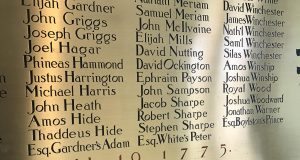 Elijah Gardner
John Griggs
Joseph Griggs
Joel Hagar
Phineas Hammond
Justus Harrington
Michael Harris
John Heath
Amos Hide
Thaddeus Hide
Esq. Gardner's Adam
Nathan Meriam
Samuel Meriam
John McIlvaine
Elijah Mills
David Nutting
David Ockington
Ephraim Payson
John Sampson
Jacob Sharpe
Robert Sharpe
Stephen Sharpe
Esq. White's Peter
David Winchester
James Winchester
Nath! Winchester
Saml! Winchester
Silas Winchester
Amos Winship
Joshua Winship
Royal Wood
Joshua Woodward
Jonathan Warner
Esq. Boylston's Prince
1 7 7 5 .